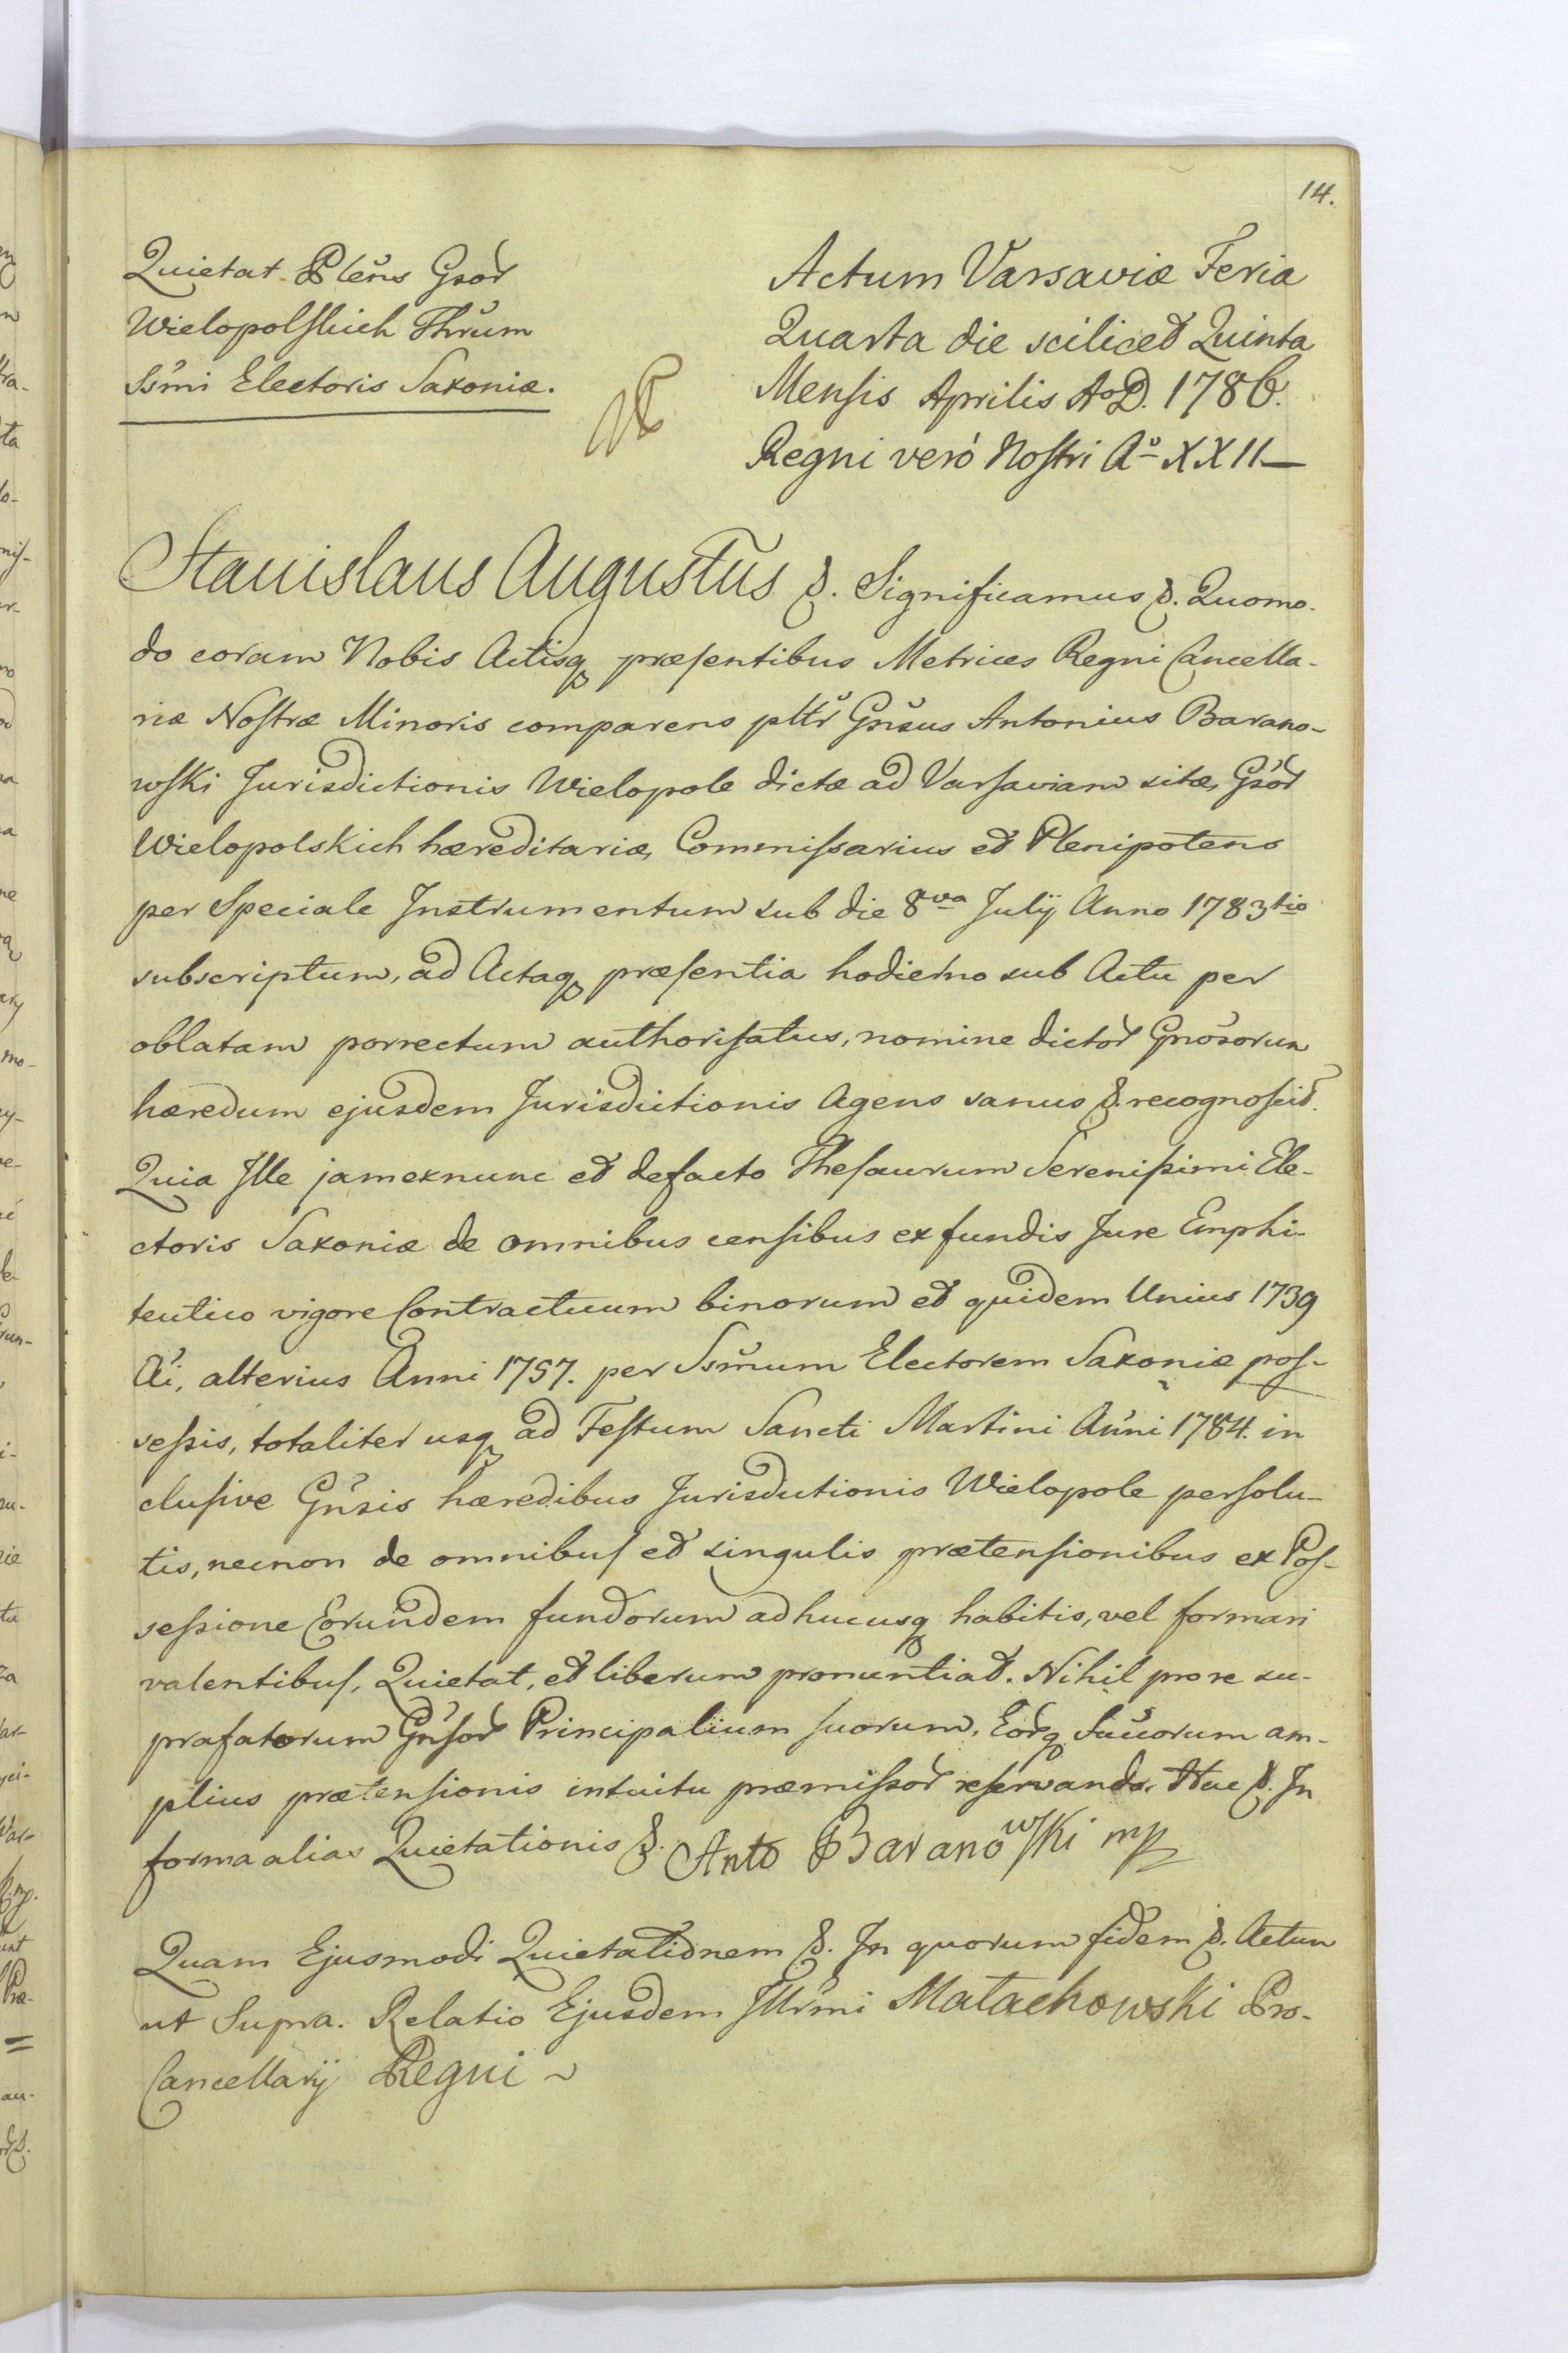 14.
Quietat Plens Gsor
Wielopolskich Thrum
Ssmi Electoris Saxoniæ.
Actum Varsaviæ Feria
Quarta die scilicet Quinta
Mensis Aprilis AoD. 1786.
Regni veró Nostri Ao XXII
Stanislaus Augustus &. Significamus &. Quomo-
do coram Nobis Actisq præsentibus Metrices Regni Cancella-
riæ Nostræ Minoris comparens pltr Gnsus Antonius Barano-
wski Jurisdictionis Wielopole dictæ ad Varsaviam sitæ, Gsor
Wielopolskich hæreditariæ, Commissarius et Plenipotens
per Speciale Instrumentum sub die 8va Julij Anno 1783tio
subscriptum, ad Actaq præsentia hodierno sub Actu per
oblatam porrectum authorisatus, nomine dictor Gnosorum
hæredum ejusdem Jurisdictionis Agens sanus &. recognoscit.
Quia Ille jamexnunc et defacto Thesaurum Serenissimi Ele-
ctoris Saxoniæ de omnibus censibus ex fundis Jure Emphi-
teutico vigore Contractuum binorum et quidem Unius 1739
Ai, alterius Anni 1757. per Ssmum Electorem Saxoniæ pos-
sessis, totaliter usq ad Festum Sancti Martini Anni 1784. in
clusive Gnsis hæredibus Jurisdictionis Wielopole persolu-
tis, necnon de omnibus et singulis prætensionibus ex Pos-
sessione Eorundem fundorum adhucusq habitis, vel formari
valentibus, Quietat, et liberum pronuntiat. Nihil pro re su-
prafatorum Gnsor Principalium suorum, Eorq Sucorum am-
plius prætensionis intuitu præmissor reservando. Hac &. In
forma alias Quietationis &. Anto Baranowski mp
Quam Ejusmodi Quietationem &. In quorum fidem &. Actum
ut Supra. Relatio Ejusdem Illrmi Małachowski Pro-
Cancellarij Regni